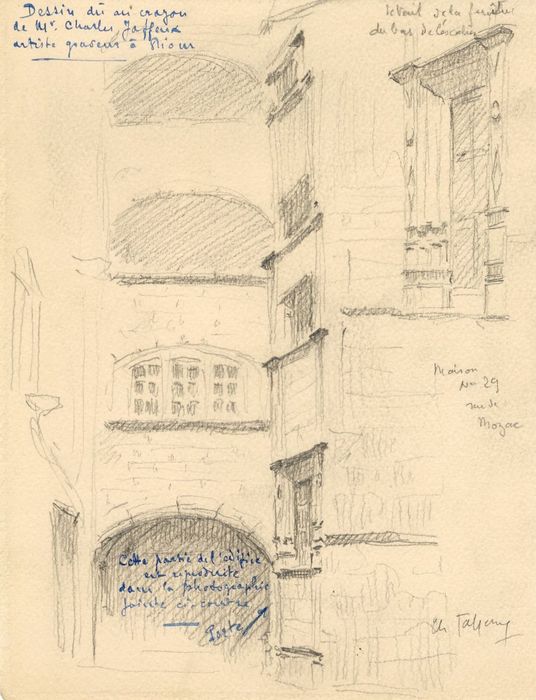 Dessin dû au crayon
de Mr. Charles Jaffeux
artiste graveur à Riom
détail de la fenêtre
du bas de l'escalier
Maison
No 29
rue de
Mozac
Cette partie de l'édifice
est reproduite
dans la photographie
jointe ci-contre
Ch Jaffeux